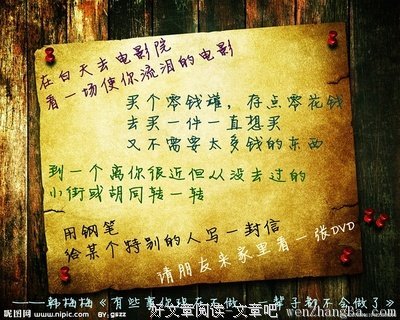 在白天去电影院
看一场使你流泪的电影
买个零钱罐，存点零花钱
去买一件一直想买
又不需要太多钱的东西
到一个离你很近但从没去过的
小街或胡同转一转
用钢笔
给某个特别的人写一封信
请朋友来家里看一张DVD
——韩梅梅《有些事你现在不做，一辈子都不会做了》
昵图网 www.nipic.com
By: gszz
好文章阅读-文章吧 wenzhangba.com